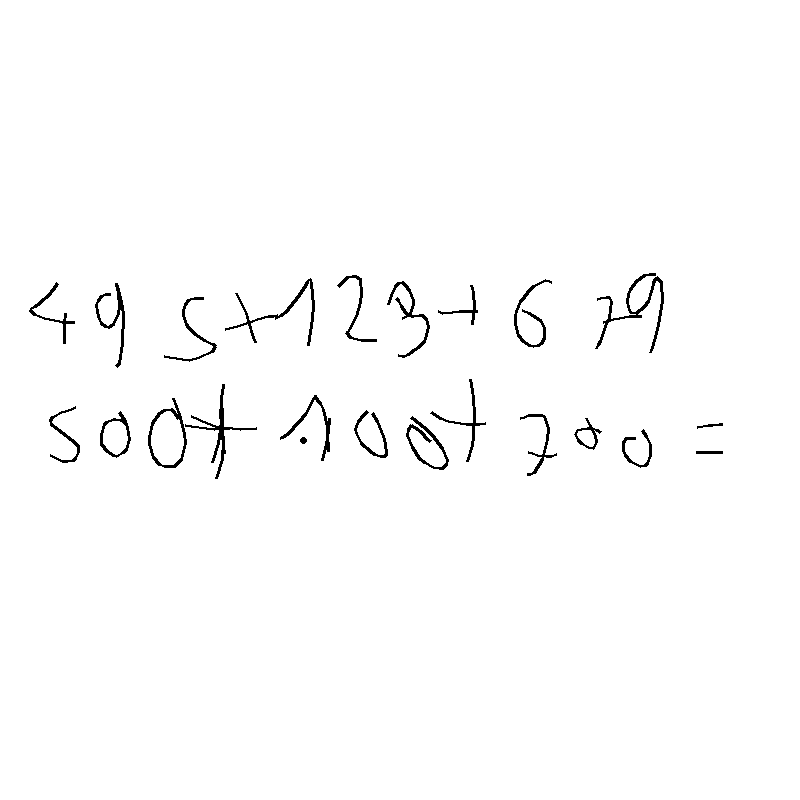 495+123+679
500+100+700=